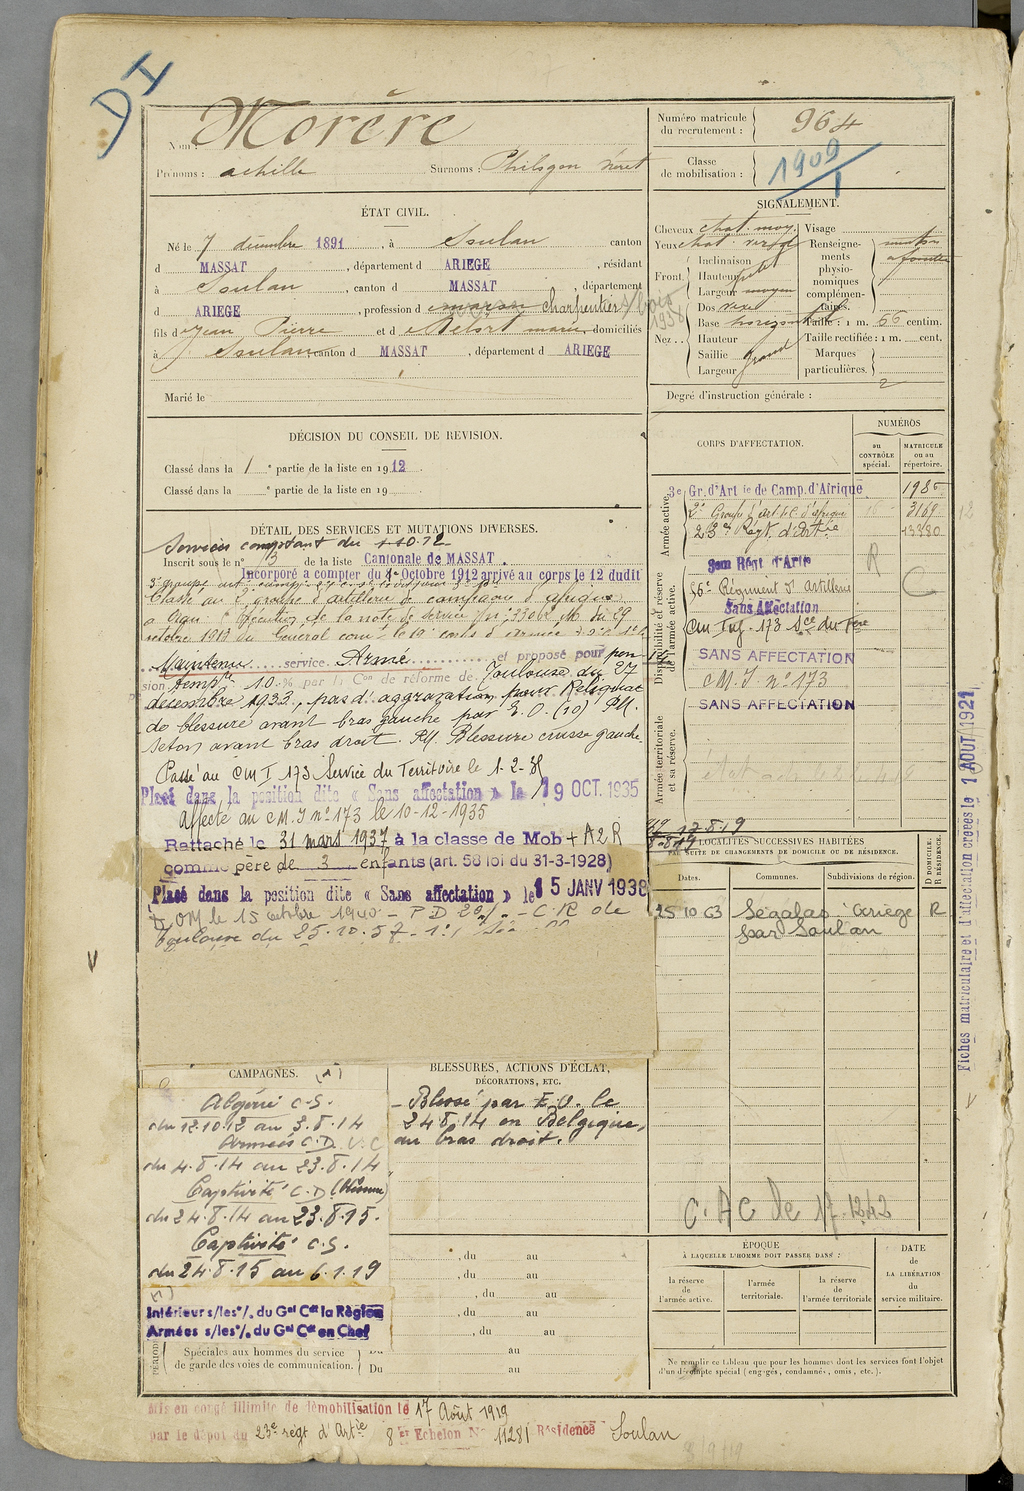 DI
Nom : Morère
Prénoms : achille Surnoms : Philogon Néret
ÉTAT CIVIL.
Né le 7 décembre 1891, à Soulan canton
d MASSAT, département d ARIEGE, résidant
à Soulan, canton d MASSAT, département
d ARIEGE, profession d maçon charpentier s/bois 1938
fils d Jean Pierre et d Melort marie domiciliés
à Soulan canton d MASSAT, département d ARIEGE
Marié le
DÉCISION DU CONSEIL DE REVISION.
Classé dans la 1e partie de la liste en 1912.
Classé dans la e partie de la liste en 19
DÉTAIL DES SERVICES ET MUTATIONS DIVERSES.
Services comptant du 1.10.12
Inscrit sous le n° 13 de la liste Cantonale de MASSAT.
Incorporé a compter du 1er Octobre 1912 arrivé au corps le 12 dudit
Classé au 2e groupe d'artillerie de campagne d'afrique
a exécution de la note de service n° 33062 M du 29
octobre 1919 du Général
Maintenu service Armé et proposé pour pen
sion temp 10 % par la Con de réforme de Toulouse du 27
décembre 1933, pas d'aggravation pour Reliquat
de blessure avant bras gauche par E.O. (10) PM.
Seton avant bras droit. PM. Blessure cuisse gauche.
Passé au CM I 173 Service du Territoire le 1-2-
Placé dans la position dite « Sans affectation » le 19 OCT. 1935
affecté au C M. I n° 173 le 10-12-1935
Rattaché le 31 mars 1937 à la classe de Mob + A2R
comme père de 3 enfants (art. 58 loi du 31-3-1928)
Placé dans la position dite « Sans affectation » le 15 JANV 1938
OM le 15 octobre 1940 - P D 20% - C.R de
Toulouse du 25.10.57
CAMPAGNES. (1)
Algérie C.S.
du 12.10.12 au 3.8.14
Armées C.D.
du 4.8.14 au 23.8.14
Captivité C.D (blessure)
du 24.8.14 au 23.8.15.
Captivité C.S.
du 24.8.15 au 6.1.19
(1)
Intérieur s/les o/. du Gal Ct la Région
Armées s/les o/. du Gal Ct en Chef
PÉRIOD
Spéciales aux hommes du service
de garde des voies de communication.
Du au
Du au
BLESSURES, ACTIONS D'ÉCLAT,
DÉCORATIONS, ETC.
- Blessé par E.O. le
24.8.14 en Belgique,
au bras droit.
, du au
, du au
, du au
, du au
, du au
Numéro matricule
du recrutement : 964
Classe
de mobilisation : 1909/1
SIGNALEMENT.
Cheveux chat. moy.
Yeux chat. verd
Front. Inclinaison
Hauteur petit
Largeur moyen
Nez.. Dos vexe
Base horizontal
Hauteur
Saillie grand
Largeur
Visage
Renseigne-
ments
physio-
nomiques
complémen-
taires.
menton
a fossette
Taille : 1 m. 66 centim.
Taille rectifiée : 1 m. cent.
Marques
particulières.
Degré d'instruction générale : 2
CORPS D'AFFECTATION.
NUMÉROS
au CONTRÔLE spécial.
MATRICULE ou au répertoire.
Armée active.
3e Gr. d'Art ie de Camp. d'Afrique 1985
2e Groupe d'art d'afrique 16 3169
23e Régt. d'Artie 13380
Disponibilité et réserve de l'armée active.
Régt d'Artie R
56e Régiment d'artillerie C
Sans Affectation
Cm Inf. 173 Sce du Tre
SANS AFFECTATION
C M. I. n° 173
SANS AFFECTATION
Armée territoriale et sa réserve.
17.8.19
LOCALITÉS SUCCESSIVES HABITÉES
PAR SUITE DE CHANGEMENTS DE DOMICILE OU DE RÉSIDENCE.
Dates. Communes. Subdivisions de région. D DOMICILE. R RÉSIDENCE.
25 10 63 Ségalas Ariège R
par Soulan
C. A C de 17.12.42
ÉPOQUE
À LAQUELLE L'HOMME DOIT PASSER DANS :
la réserve de l'armée active.
l'armée territoriale.
la réserve de l'armée territoriale
DATE
de
LA LIBÉRATION
du
service militaire.
Ne remplir ce tableau que pour les hommes dont les services font l'objet
d'un décompte spécial (engagés, condamnés, omis, etc.).
Fiches matriculaire et d'affectation créées le 1 AOUT 1921
Mis en congé illimité de démobilisation le 17 Août 1919
par le dépôt du 23e régt d'Artie 8e Echelon N° 11281 Résidence Soulan